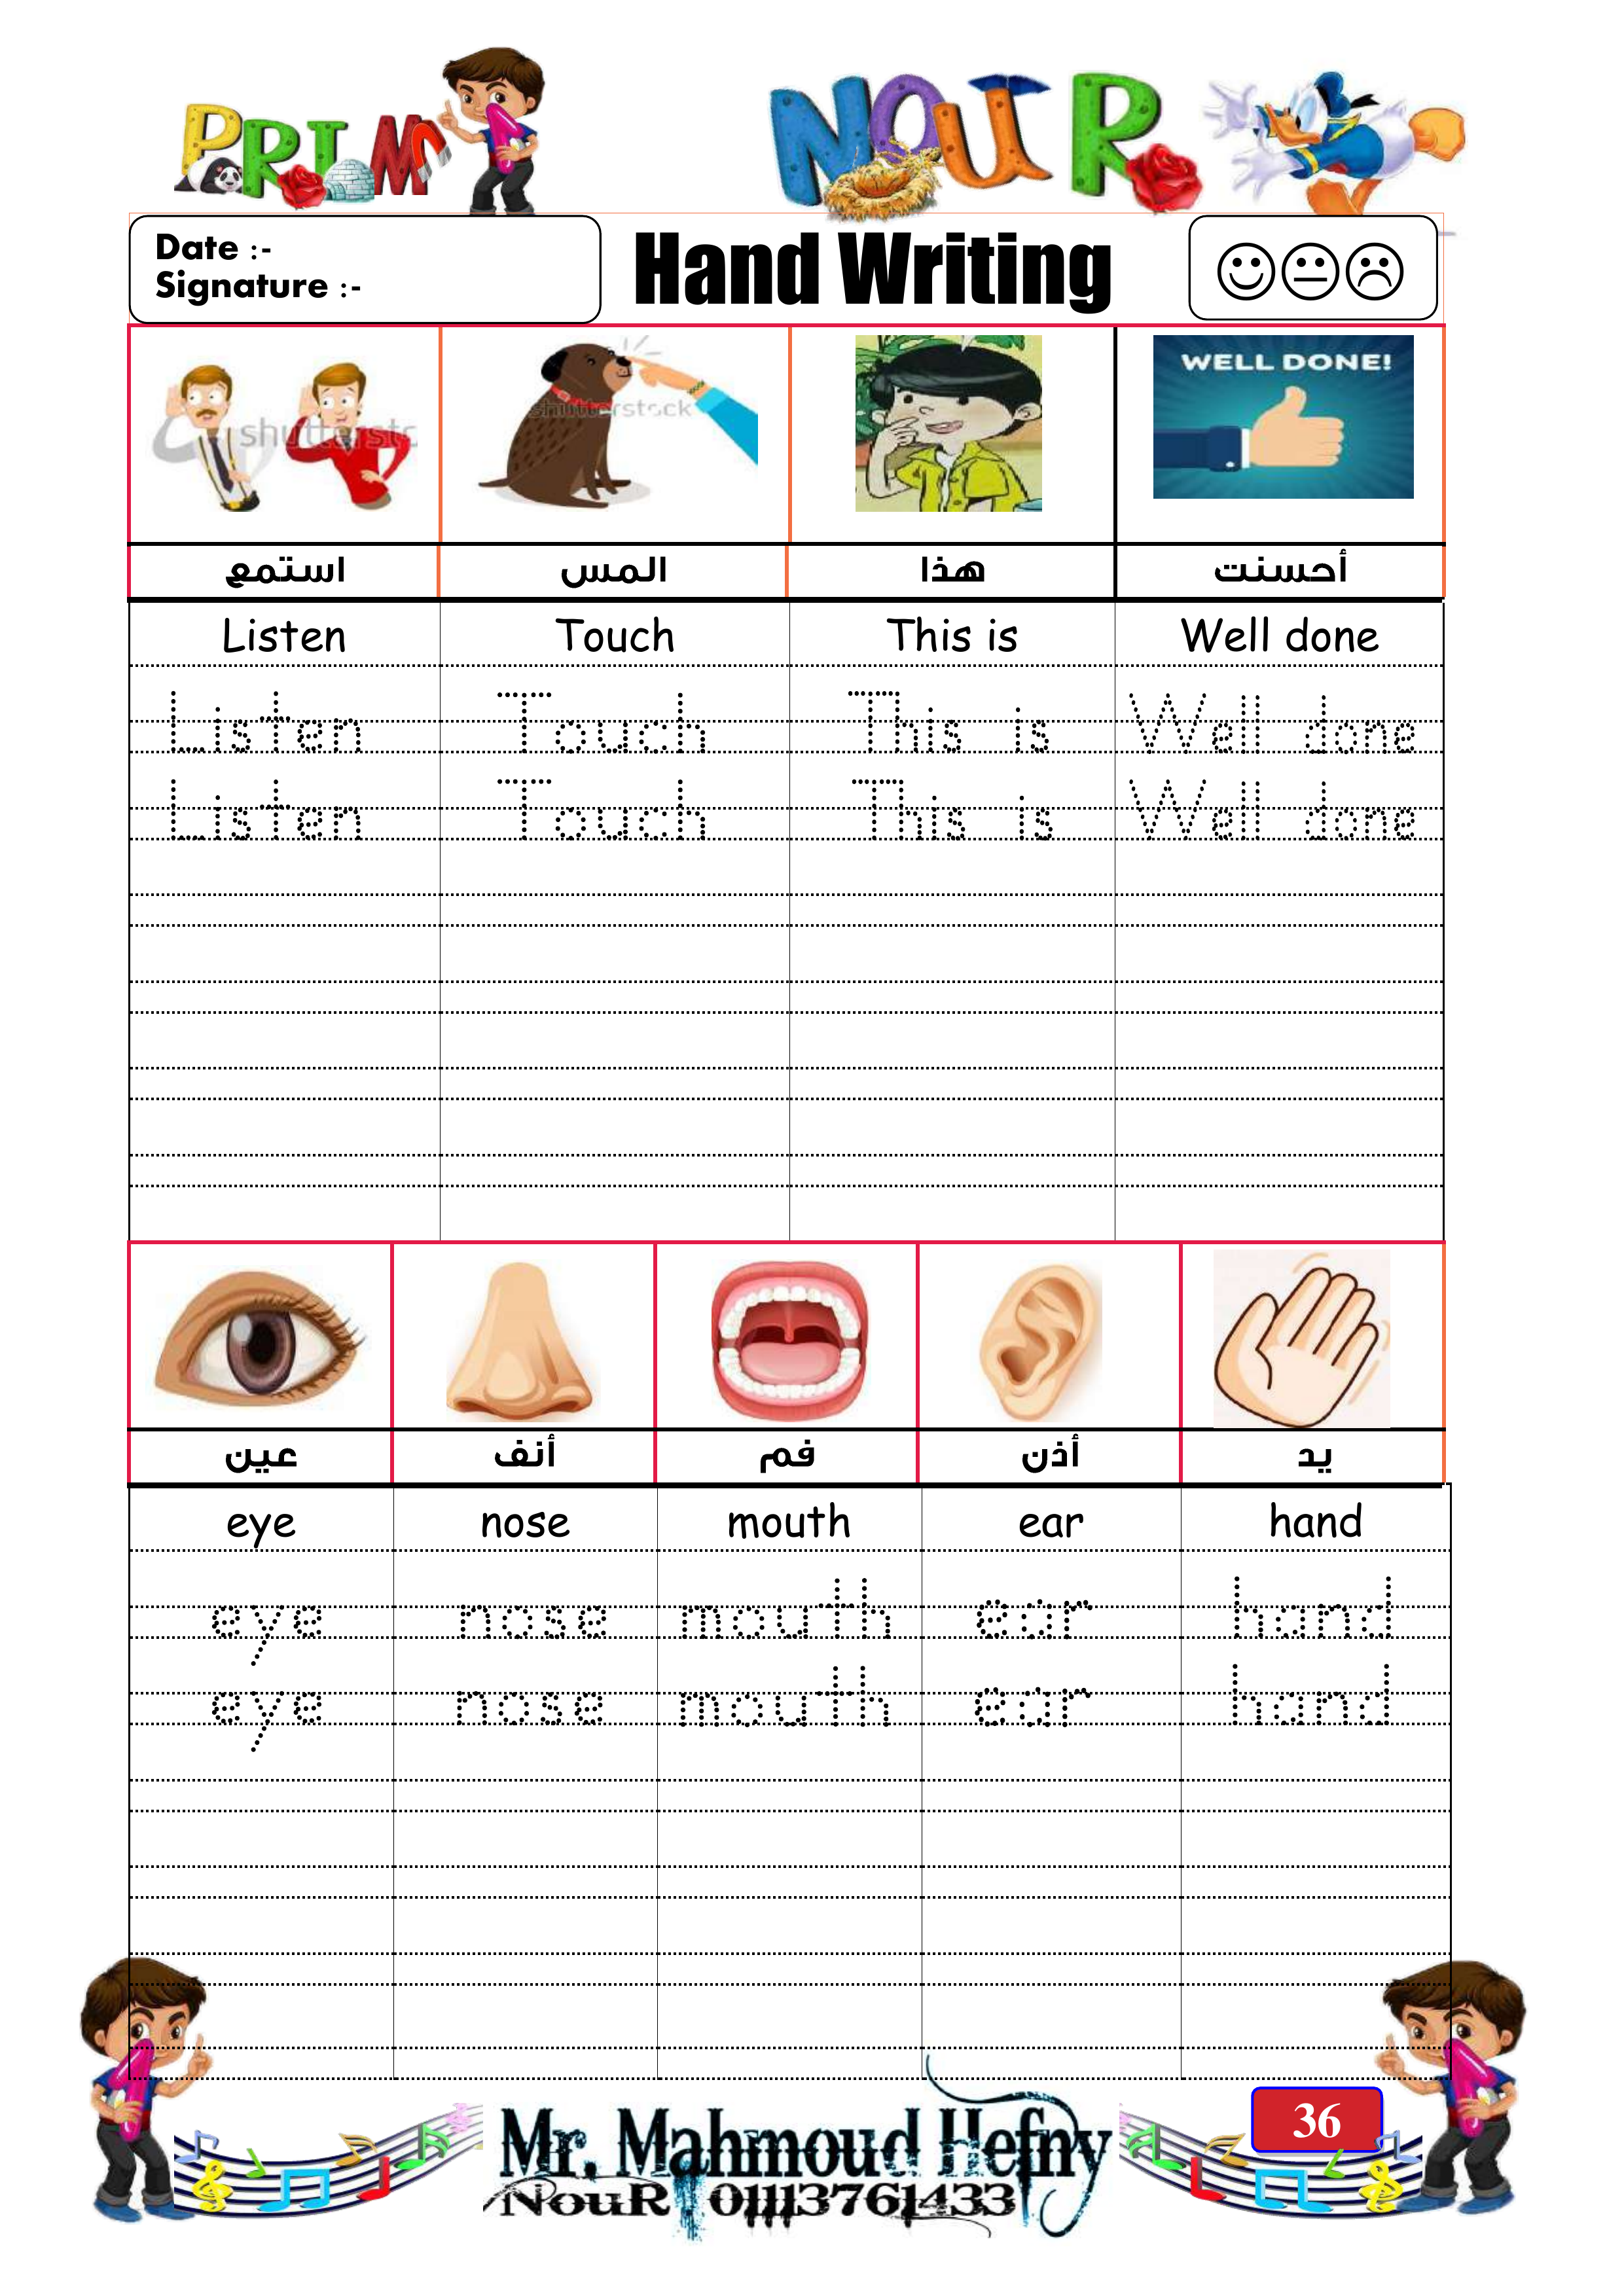 PRIM 1 NOUR
Date :-
Signature :-
Hand Writing
WELL DONE!
shutterstc shutterstock
استمع المس هذا أحسنت
Listen Touch This is Well done
Listen Touch This is Well done
Listen Touch This is Well done
عين أنف فم أذن يد
eye nose mouth ear hand
eye nose mouth ear hand
eye nose mouth ear hand
36
Mr. Mahmoud Hefny
NouR : 01113761433